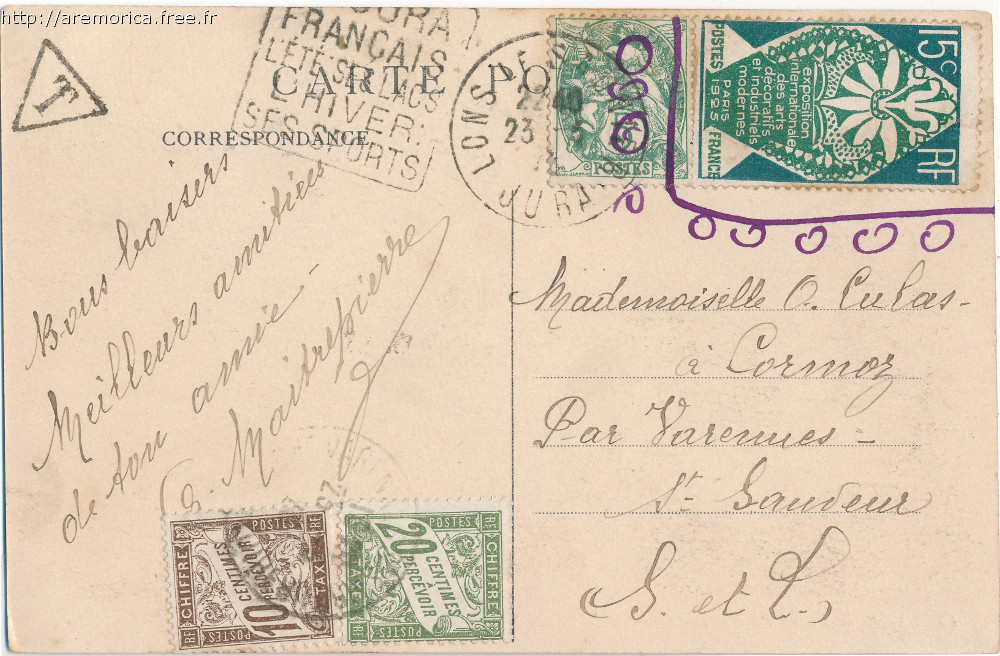 http://aremorica.free.fr
T
JURA
FRANÇAIS
L'ÉTÉ: SES LACS
L'HIVER:
SES SPORTS
CARTE PO
CORRESPONDANCE
LONS
JURA
23
POSTES
15c RF
POSTES FRANCE
exposition
internationale
des arts
décoratifs
et industriels
modernes
PARIS
1925
Bons baisers
Meilleurs amitiés
de ton amie
G. Maitrepierre
Mademoiselle O. Culas-
à Cormoz
Par Varennes-
St Gaudeur
S. et L.
POSTES RF
CHIFFRE TAXE
10 CENTIMES
A PERCEVOIR
RF POSTES
POSTES RF
CHIFFRE TAXE
20 CENTIMES
A PERCEVOIR
RF POSTES